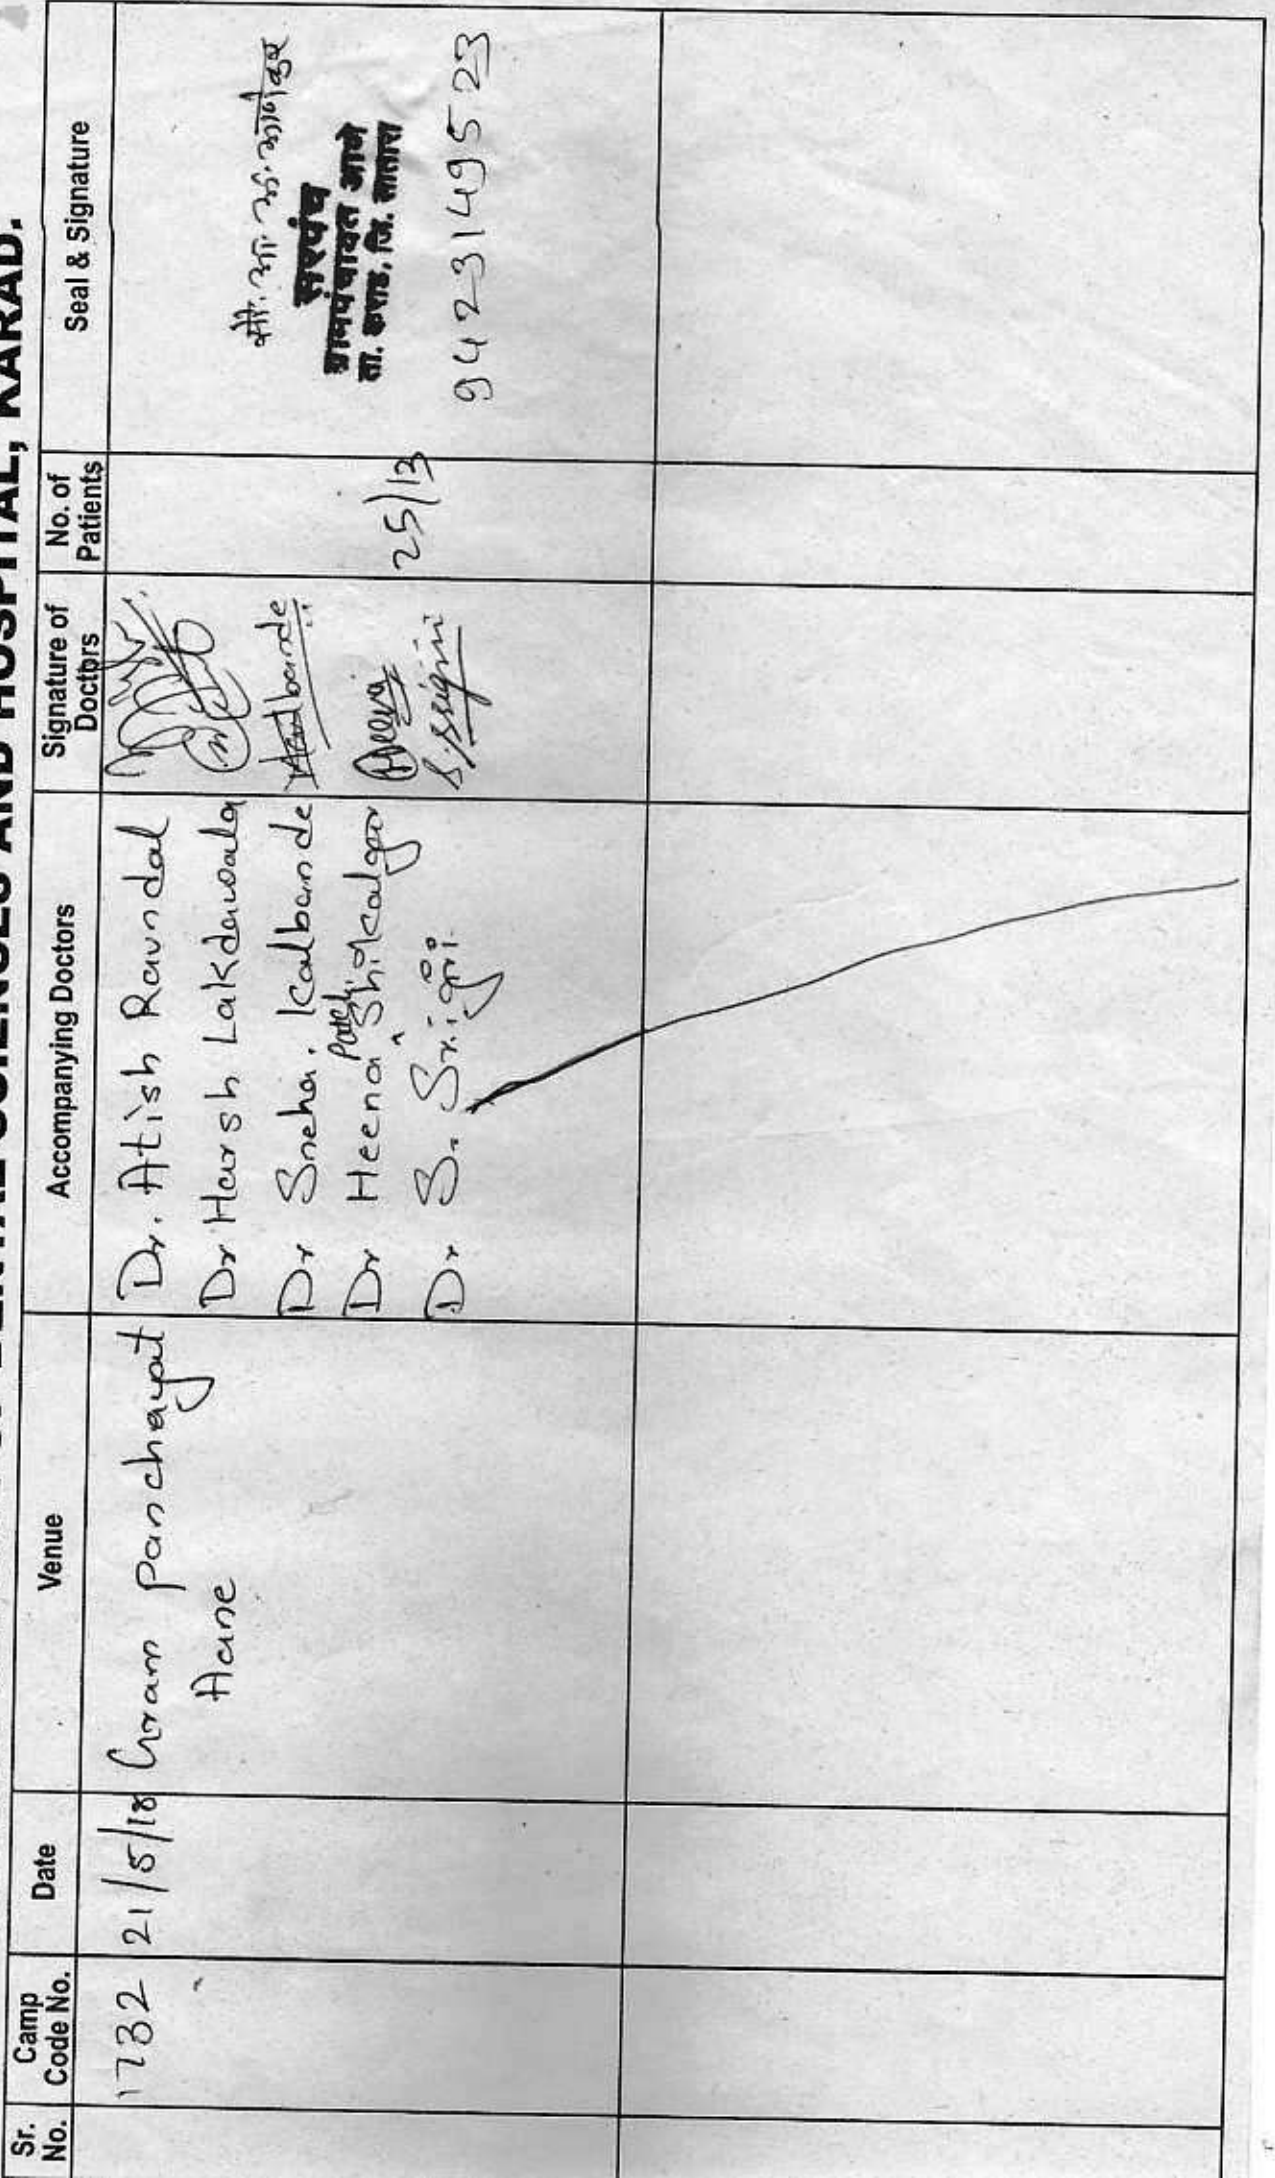 DENTAL SCIENCES AND HOSPITAL, KARAD.
Sr. No.
Camp Code No.
Date
Venue
Accompanying Doctors
Signature of Doctors
No. of Patients
Seal & Signature
1732
21/5/18
Gram panchayat
Aane
Dr. Atish Raundal
Dr Harsh Lakdawala
Dr Sneha. Kalbande
Dr Heena Shikalgar
Dr S. Srigiri
Kalbande
S. Srigiri
25/13
सरपंच
ग्रामपंचायत आणे
ता. कराड, जि. सातारा
9423149523